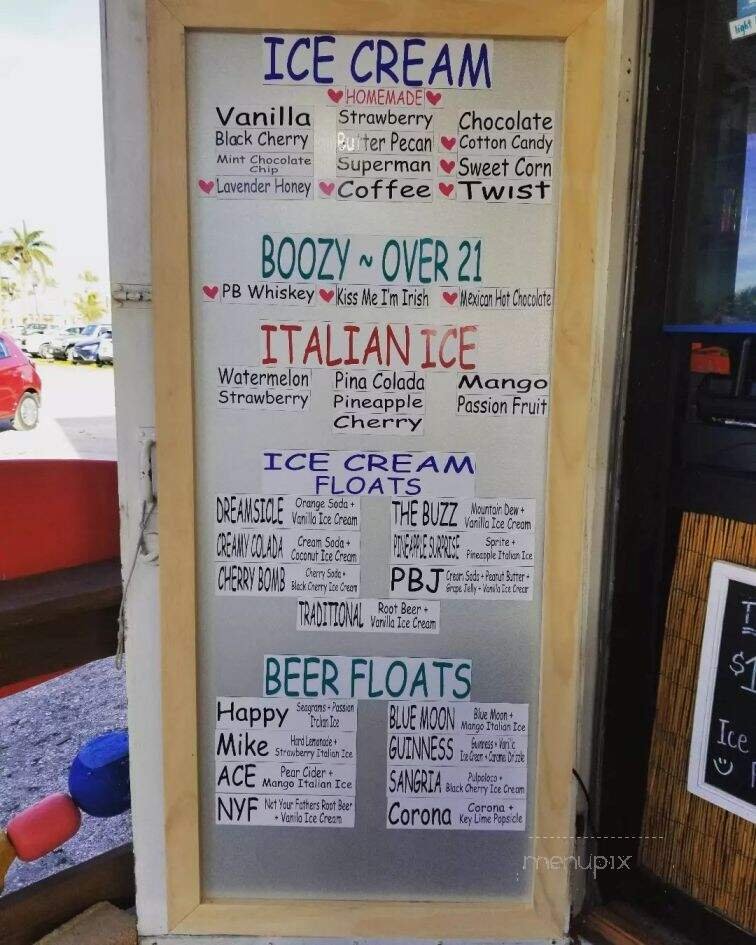 ICE CREAM
HOMEMADE
Vanilla Strawberry Chocolate
Black Cherry Butter Pecan Cotton Candy
Mint Chocolate Chip Superman Sweet Corn
Lavender Honey Coffee Twist
BOOZY ~ OVER 21
PB Whiskey Kiss Me I'm Irish Mexican Hot Chocolate
ITALIAN ICE
Watermelon Pina Colada Mango
Strawberry Pineapple Passion Fruit
Cherry
ICE CREAM
FLOATS
DREAMSICLE Orange Soda + Vanilla Ice Cream
THE BUZZ Mountain Dew + Vanilla Ice Cream
CREAMY COLADA Cream Soda + Coconut Ice Cream
PINEAPPLE SURPRISE Sprite + Pineapple Italian Ice
CHERRY BOMB Cherry Soda + Black Cherry Ice Cream
PBJ Cream Soda + Peanut Butter + Grape Jelly + Vanilla Ice Cream
TRADITIONAL Root Beer + Vanilla Ice Cream
BEER FLOATS
Happy Seagrams + Passion Italian Ice
BLUE MOON Blue Moon + Mango Italian Ice
Mike Hard Lemonade + Strawberry Italian Ice
GUINNESS Guinness + Vanilla Ice Cream + Caramel Drizzle
ACE Pear Cider + Mango Italian Ice
SANGRIA Pulpoloco + Black Cherry Ice Cream
NYF Not Your Fathers Root Beer + Vanilla Ice Cream
Corona Corona + Key Lime Popsicle
light
$1
Ice
menupix